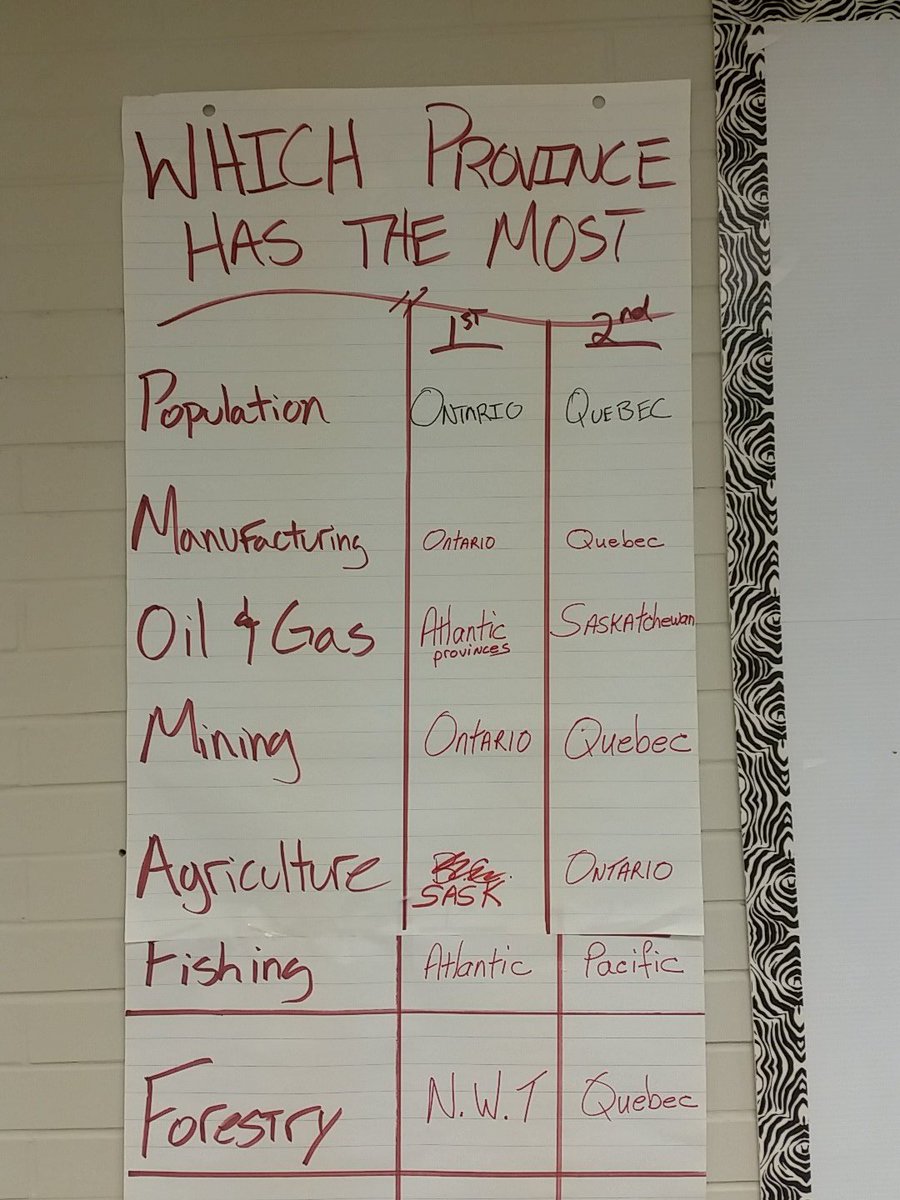 WHICH PROVINCE
HAS THE MOST
1ST 2nd
Population ONTARIO QUEBEC
Manufacturing ONTARIO Quebec
Oil & Gas Atlantic provinces SASKAtchewan
Mining ONTARIO Quebec
Agriculture SASK ONTARIO
Fishing Atlantic Pacific
Forestry N.W.T Quebec